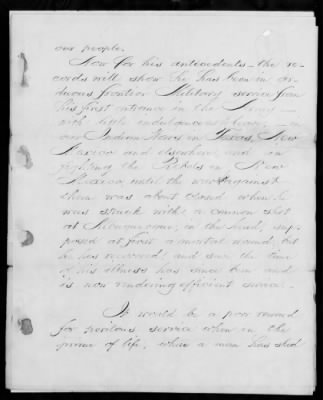 our people.
Now for his antecedents—the re-
cords will show he has been in ar-
duous frontier Military service from
his first entrance in the Army
with little indulgence of leave, in
our Indian Wars in Texas, New
Mexico and elsewhere, and in
fighting the Rebels in New
Mexico, until the war against
them was about closed when he
was struck with a cannon shot
at Albuquerque, in the head, sup-
posed at first a mortal wound, but
he has recovered, and save the time
of his illness has since been and
is now rendering efficient service.
It would be a poor reward
for perilous service when in the
prime of life, when a man has shed